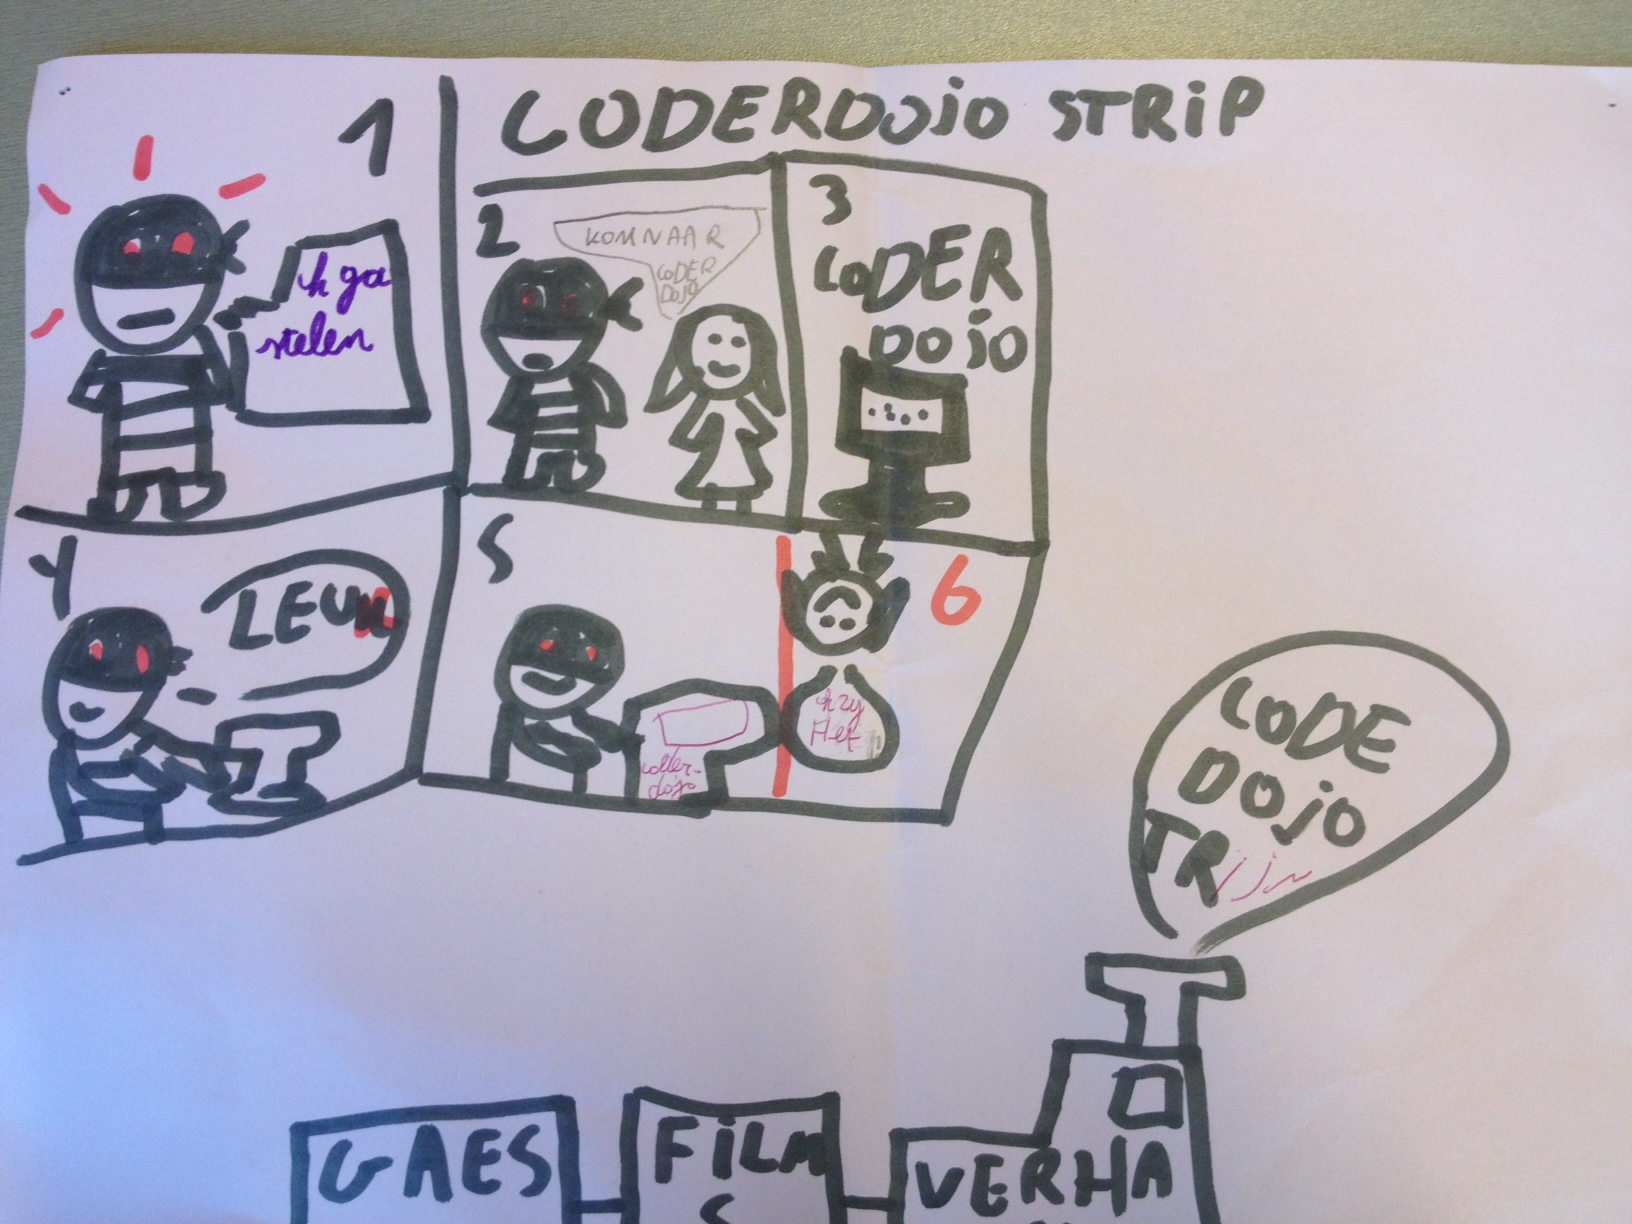 1
CODERDOJO STRIP
ik ga
stelen
2
KOM NAAR
CODER
DOJO
3
CODER
DOJO
4
LEUK
5
coder-
dojo
6
CODE
DOJO
TR
GAES
FILM
S
VERHA